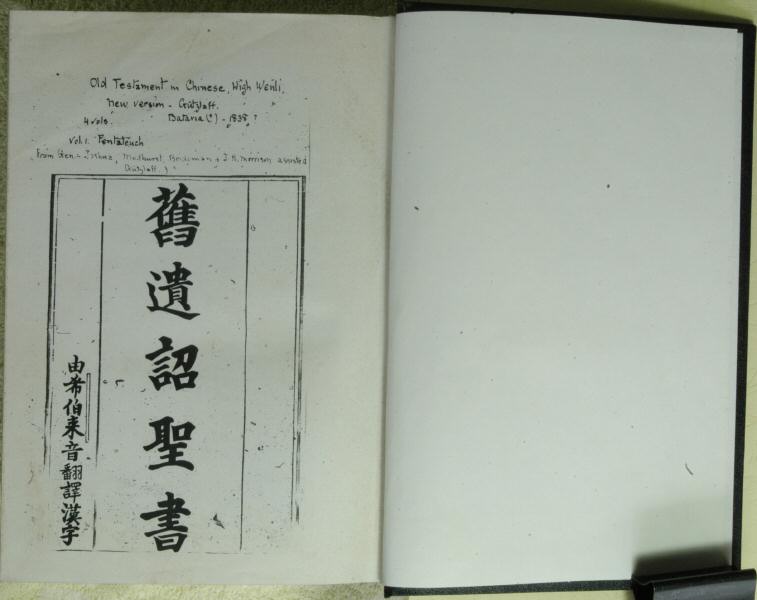 Old Testament in Chinese, High Wenli,
New version - Gützlaff.
4 vols. Batavia (?) - 1838 ?
Vol. 1. Pentateuch
(From Gen - Joshua, Medhurst, Bridgman & J. R. Morrison assisted
Gützlaff.)
舊遺詔聖書
由希伯來音翻譯漢字